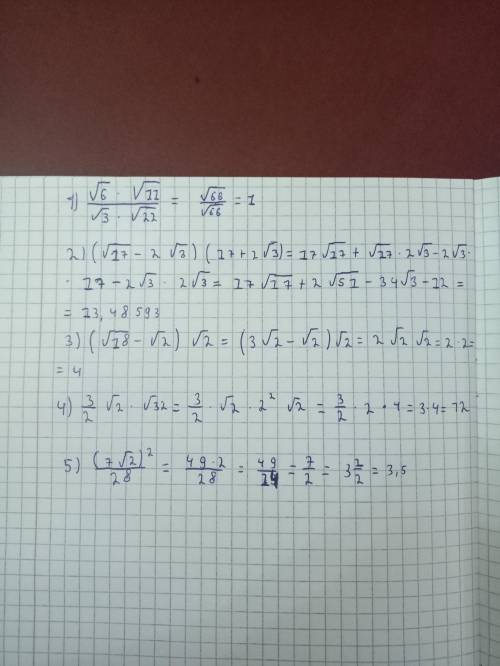 1) √6 · √11 / √3 · √22 = √66 / √66 = 1
2) (√17 - 2 √3) (17 + 2√3) = 17√17 + √17 · 2√3 - 2√3 ·
· 17 - 2√3 · 2√3 = 17√17 + 2√51 - 34√3 - 12 =
= 13,48593
3) (√18 - √2) √2 = (3√2 - √2)√2 = 2√2 √2 = 2·2=
= 4
4) 3/2 √2 · √32 = 3/2 · √2 · 2² √2 = 3/2 · 2 · 4 = 3·4 = 12
5) (7√2)² / 28 = 49·2 / 28 = 49 / 14 = 7/2 = 3 1/2 = 3,5